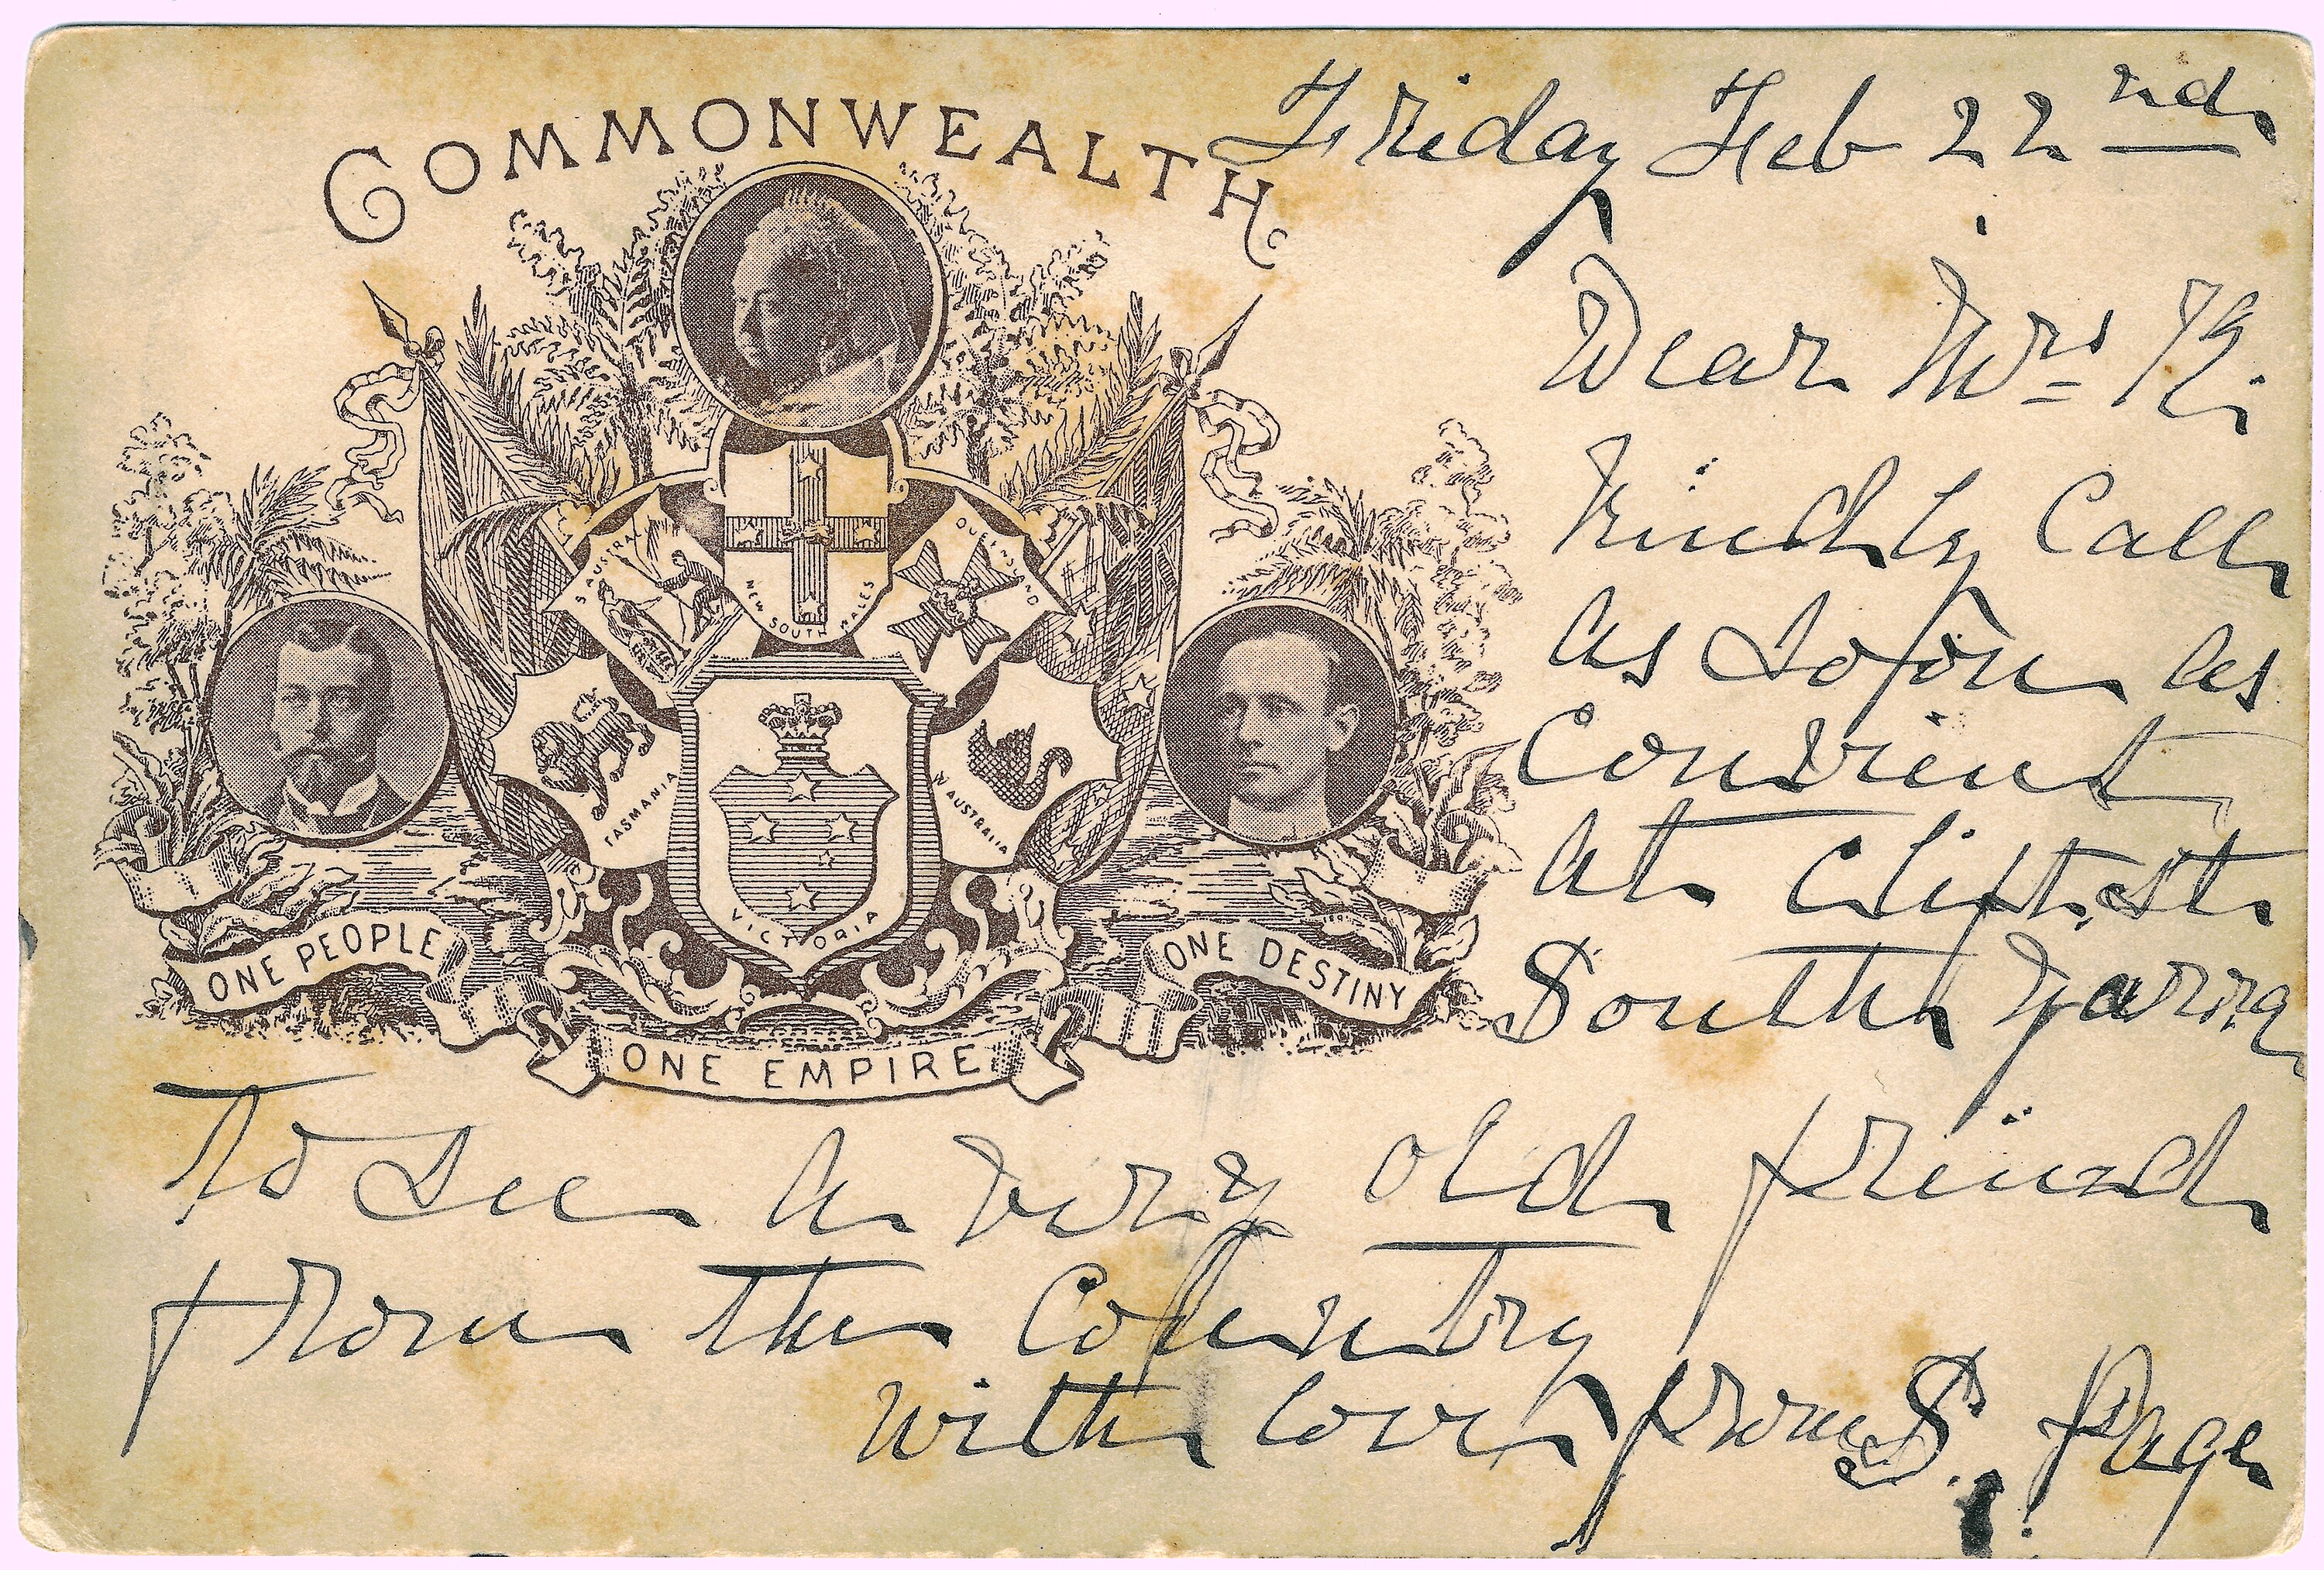 COMMONWEALTH
Friday Feb 22nd
Dear Mrs
Kindly Call
as soon as
Convient
at Clift St
South Yarra
To see a very old friend
from the Country
with love from S. Page
S AUSTRALIA
NEW SOUTH WALES
QUEENSLAND
TASMANIA
W AUSTRALIA
VICTORIA
ONE PEOPLE
ONE DESTINY
ONE EMPIRE